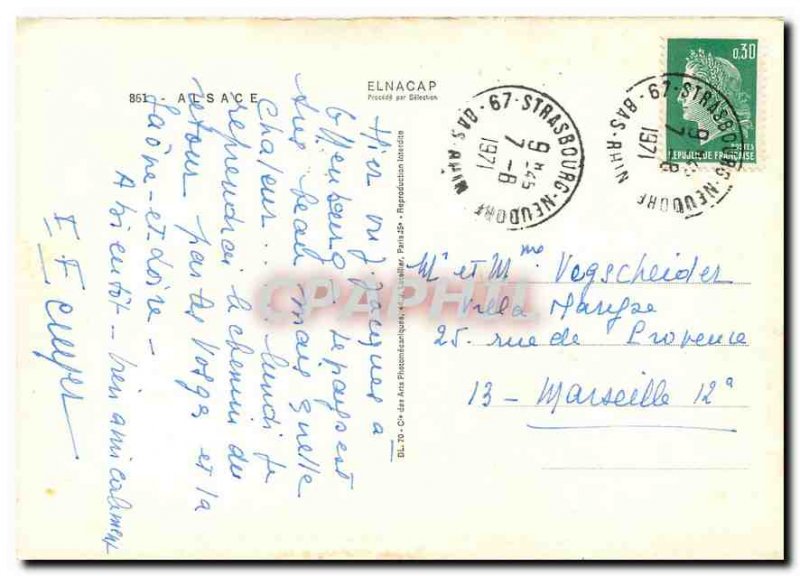 861 - ALSACE
ELNACAP
Procédé par Sélection
Hier vu Jacques à
Offenburg. Le pays est
très beau mais quelle
chaleur... lundi je
reprendrai le chemin du
retour par les Vosges et la
Saône-et-Loire -
A bientôt - bien amicalement
DL. 70 - Cie des Arts Photomécaniques, Paris 15e - Reproduction Interdite
67 - STRASBOURG-NEUDORF
BAS-RHIN
9 H 45
7 - 8
1971
0,30
POSTES
REPUBLIQUE FRANCAISE
67 - STRASBOURG-NEUDORF
BAS-RHIN
1971
Mr et Mme Vogscheider
Villa Maryse
25. rue de Provence
13 - Marseille 12e
CPAPHIL